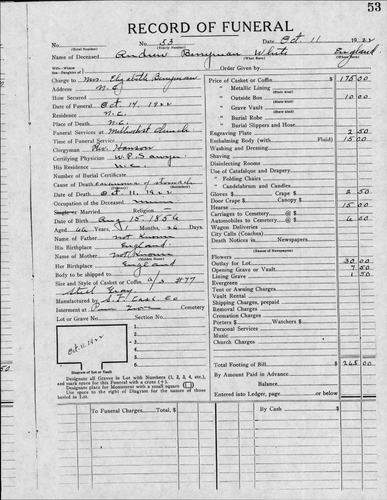 53
RECORD OF FUNERAL
No. No. 53 Date Oct. 11 1922
(Total Number) (Yearly Number)
Name of Deceased Andrew Berryman White England
(What Race) (Where Born)
Charge to Mrs. Elizabeth Berryman Order Given by
Address N.C.
How Secured
Date of Funeral Oct 14, 1922
Residence N.C.
Place of Death N.C.
Funeral Services at Methodist Church
Time of Funeral Service
Clergyman Rev. Hanson
Certifying Physician W.P. Sawyer
His Residence N.C.
Number of Burial Certificate
Cause of Death of stomach
Date of Death Oct. 11, 1922
Occupation of the Deceased Miner
Single or Married. Religion
Date of Birth Aug 15, 1856
Aged 66 Years, 1 Months, 26 Days
Name of Father Not Known
His Birthplace England
Name of Mother Not Known
(Maiden Name)
Her Birthplace England
Body to be shipped to
Size and Style of Casket or Coffin 6/3 #77
Steel Gray
Manufactured by S.F. Cask. Co
Interment at Pine Grove Cemetery
Lot or Grave No. Section No.
Oct. 11, 22
Diagram of Lot or Vault
Designate all Graves in Lot with Numbers (1, 2, 3, 4, etc.),
and mark space for this Funeral with a cross (+).
Designate place for Monument with a small square
Use space to the right of Diagram for the names of those
buried in Lot.
Price of Casket or Coffin $ 175 00
" Metallic Lining
(State kind)
" Outside Box 10 00
(State kind)
" Grave Vault
(State kind)
" Burial Robe
(State kind)
" Burial Slippers and Hose
Engraving Plate 2 50
Embalming Body (with Fluid) 15 00
Washing and Dressing
Shaving
Disinfecting Rooms
Use of Catafalque and Drapery
" Folding Chairs
" Candelabrum and Candles
Gloves $ Crape $ 2 50
Door Crape $ Canopy $
Hearse 15 00
Carriages to Cemetery @ $
Automobiles to Cemetery @ $ 6 00
Wagon Deliveries
City Calls (Coaches)
Death Notices in Newspapers
Flowers
Outlay for Lot 30 00
Opening Grave or Vault 7 50
Lining Grave 1 50
Evergreen
Tent or Awning Charges
Vault Rental
Shipping Charges, prepaid
Removal Charges
Cremation Charges
Porters $ Watchers $
Personal Services
Music
Church Charges
Total Footing of Bill $ 265 00
By Amount Paid in Advance
Balance
Entered into Ledger, page or below
To Funeral Charges Total, $ By Cash $